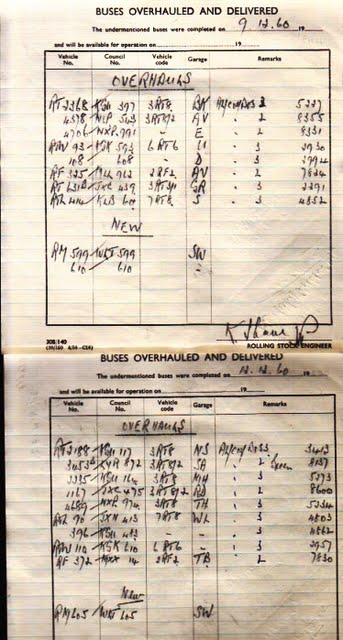 BUSES OVERHAULED AND DELIVERED
The undermentioned buses were completed on 9.12.60 19
and will be available for operation on 19
Vehicle No. Council No. Vehicle code Garage Remarks
OVERHAULS
RT 2368 KGU 397 3RT8 3 5227
4378 NLP 543 3RT8/2 AV " 2 8355
4706 NXP 991 - E " 2 8331
593 6RT6 " 3 2930
108 608 - D " 3
RF 325 MLL 962 2RF2 AV " 2 7824
JXC 439 GR " 3 2291
7RT8 S " 3 4352
NEW
RM 599 WLT 599 SW
610 610 -
308/140
ROLLING STOCK ENGINEER
BUSES OVERHAULED AND DELIVERED
The undermentioned buses were completed on 12.12.60 19
and will be available for operation on 19
Vehicle No. Council No. Vehicle code Garage Remarks
OVERHAULS
RT 2188 117 3RT8 NS 3
KYR 872 3RT8/2 SA " 2 Green 8137
3335 3RT8 MH " 3 5273
1167 JXC 475 3RT8/2 " 2 8600
NXP 3RT8 TH " 3 5234
RTL 90 JXN 413 7RT8 WL " 3 4503
396 413 - - " 3 4562
110 610 6RT6 - " 3 2957
RF 372 MXX 14 2RF2 TB " 2 7830
New
RM 605 WLT 605 SW